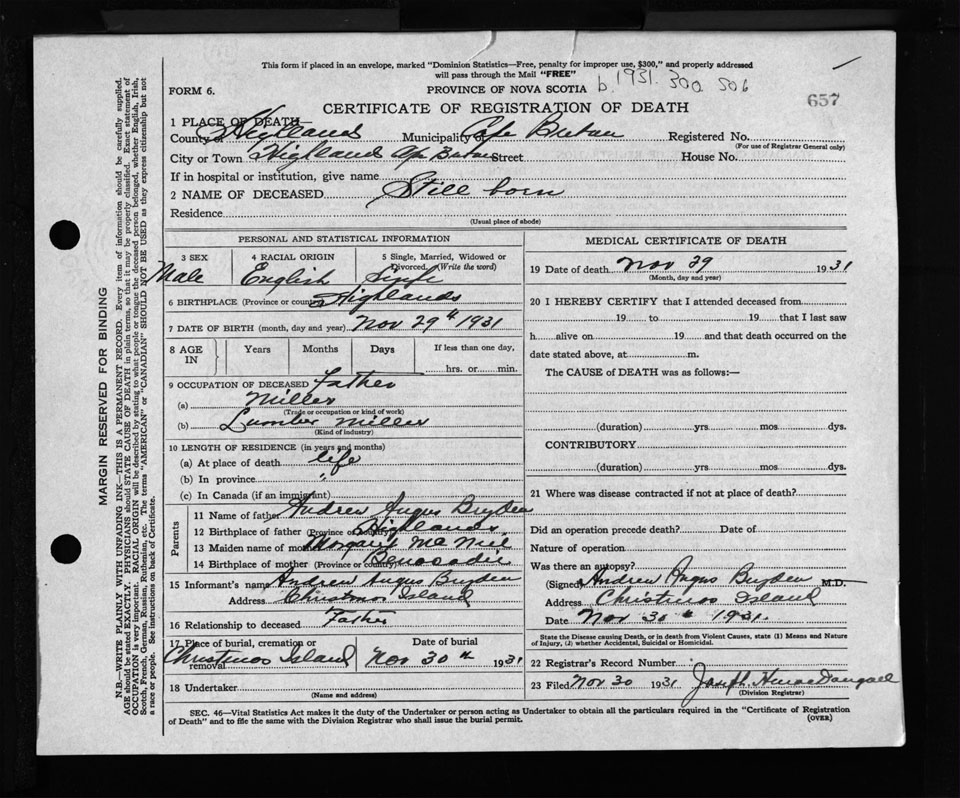 This form if placed in an envelope, marked "Dominion Statistics—Free, penalty for improper use, $300," and properly addressed
will pass through the Mail "FREE"
FORM 6.
PROVINCE OF NOVA SCOTIA
b. 1931. 300 506
657
CERTIFICATE OF REGISTRATION OF DEATH
1 PLACE OF DEATH—
County of Highlands Municipality Cape Breton Registered No.
(For use of Registrar General only)
City or Town Highland Cape Breton Street House No.
If in hospital or institution, give name
2 NAME OF DECEASED Still born
Residence
(Usual place of abode)
PERSONAL AND STATISTICAL INFORMATION
3 SEX 4 RACIAL ORIGIN 5 Single, Married, Widowed or
Divorced. (Write the word)
Male English Single
6 BIRTHPLACE (Province or country) Highlands
7 DATE OF BIRTH (month, day and year) Nov 29th 1931
8 AGE IN Years Months Days If less than one day,
hrs. or min.
9 OCCUPATION OF DECEASED Father
(a) Miller
(Trade or occupation or kind of work)
(b) Lumber Miller
(Kind of industry)
10 LENGTH OF RESIDENCE (in years and months)
(a) At place of death life
(b) In province "
(c) In Canada (if an immigrant)
Parents
11 Name of father Andrew Angus Bryden
12 Birthplace of father (Province or country) Highlands
13 Maiden name of mother Margaret McNeil
14 Birthplace of mother (Province or country) Benacadie
15 Informant's name Andrew Angus Bryden
Address Christmas Island
16 Relationship to deceased Father
17 Place of burial, cremation or removal Date of burial
Christmas Island Nov 30th 1931
18 Undertaker
(Name and address)
MEDICAL CERTIFICATE OF DEATH
19 Date of death Nov 29 1931
(Month, day and year)
20 I HEREBY CERTIFY that I attended deceased from
19 to 19 that I last saw
h alive on 19 and that death occurred on the
date stated above, at m.
The CAUSE of DEATH was as follows:—
(duration) yrs. mos. dys.
CONTRIBUTORY
(duration) yrs. mos. dys.
21 Where was disease contracted if not at place of death?
Did an operation precede death? Date of
Nature of operation
Was there an autopsy?
(Signed) Andrew Angus Bryden M.D.
Address Christmas Island
Date Nov 30th 1931.
State the Disease causing Death, or in death from Violent Causes, state (1) Means and Nature
of Injury, (2) whether Accidental, Suicidal or Homicidal.
22 Registrar's Record Number
23 Filed Nov 30 1931 Joseph H MacDougall
(Division Registrar)
SEC. 46—Vital Statistics Act makes it the duty of the Undertaker or person acting as Undertaker to obtain all the particulars required in the "Certificate of Registration
of Death" and to file the same with the Division Registrar who shall issue the burial permit.
(OVER)
MARGIN RESERVED FOR BINDING
N.B.—WRITE PLAINLY WITH UNFADING INK—THIS IS A PERMANENT RECORD. Every item of information should be carefully supplied.
AGE should be stated EXACTLY. PHYSICIANS should STATE CAUSE OF DEATH in plain terms, so that it may be properly classified. Exact statement of
OCCUPATION is very important. RACIAL ORIGIN will be described by stating to what people or tongue the deceased person belonged, whether English, Irish,
Scotch, French, German, Russian, Ruthenian, etc. The terms "AMERICAN" or "CANADIAN" SHOULD NOT BE USED as they express citizenship but not
a race or people. See instructions on back of Certificate.